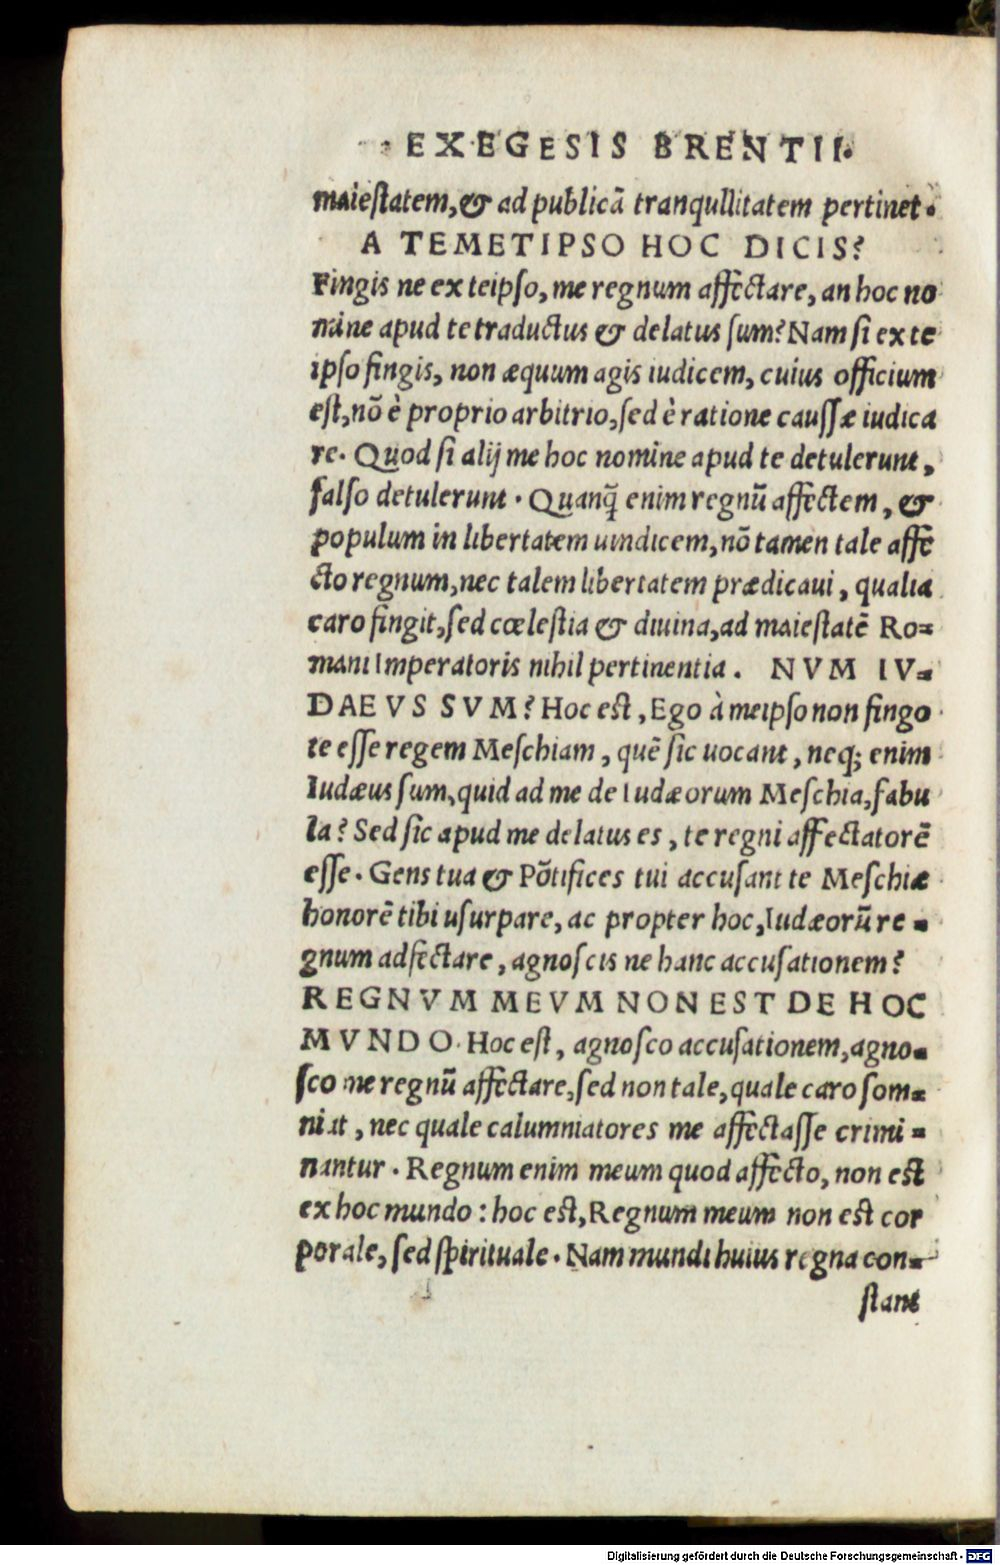 EXEGESIS BRENTII.
maiestatem, & ad publicã tranqullitatem pertinet.
A TEMETIPSO HOC DICIS?
Fingis ne ex teipso, me regnum affectare, an hoc no
mine apud te traductus & delatus sum? Nam si ex te
ipso fingis, non æquum agis iudicem, cuius officium
est, nõ è proprio arbitrio, sed è ratione caussæ iudica
re. Quod si alij me hoc nomine apud te detulerunt,
falso detulerunt. Quanq̃ enim regnũ affectem, &
populum in libertatem uindicem, nõ tamen tale affe
cto regnum, nec talem libertatem prædicaui, qualia
caro fingit, sed cœlestia & diuina, ad maiestatẽ Ro=
mani Imperatoris nihil pertinentia. NVM IV=
DAEVS SVM? Hoc est, Ego à meipso non fingo
te esse regem Meschiam, quẽ sic uocant, neq; enim
Iudæus sum, quid ad me de Iudæorum Meschia, fabu
la? Sed sic apud me delatus es, te regni affectatorẽ
esse. Gens tua & Põtifices tui accusant te Meschiæ
honorẽ tibi usurpare, ac propter hoc, Iudæorũ re=
gnum adfectare, agnoscis ne hanc accusationem?
REGNVM MEVM NON EST DE HOC
MVNDO. Hoc est, agnosco accusationem, agno=
sco me regnũ affectare, sed non tale, quale caro som=
niat, nec quale calumniatores me affectasse crimi=
nantur. Regnum enim meum quod affecto, non est
ex hoc mundo: hoc est, Regnum meum non est cor
porale, sed spirituale. Nam mundi huius regna con=
stant
Digitalisierung gefördert durch die Deutsche Forschungsgemeinschaft - DFG